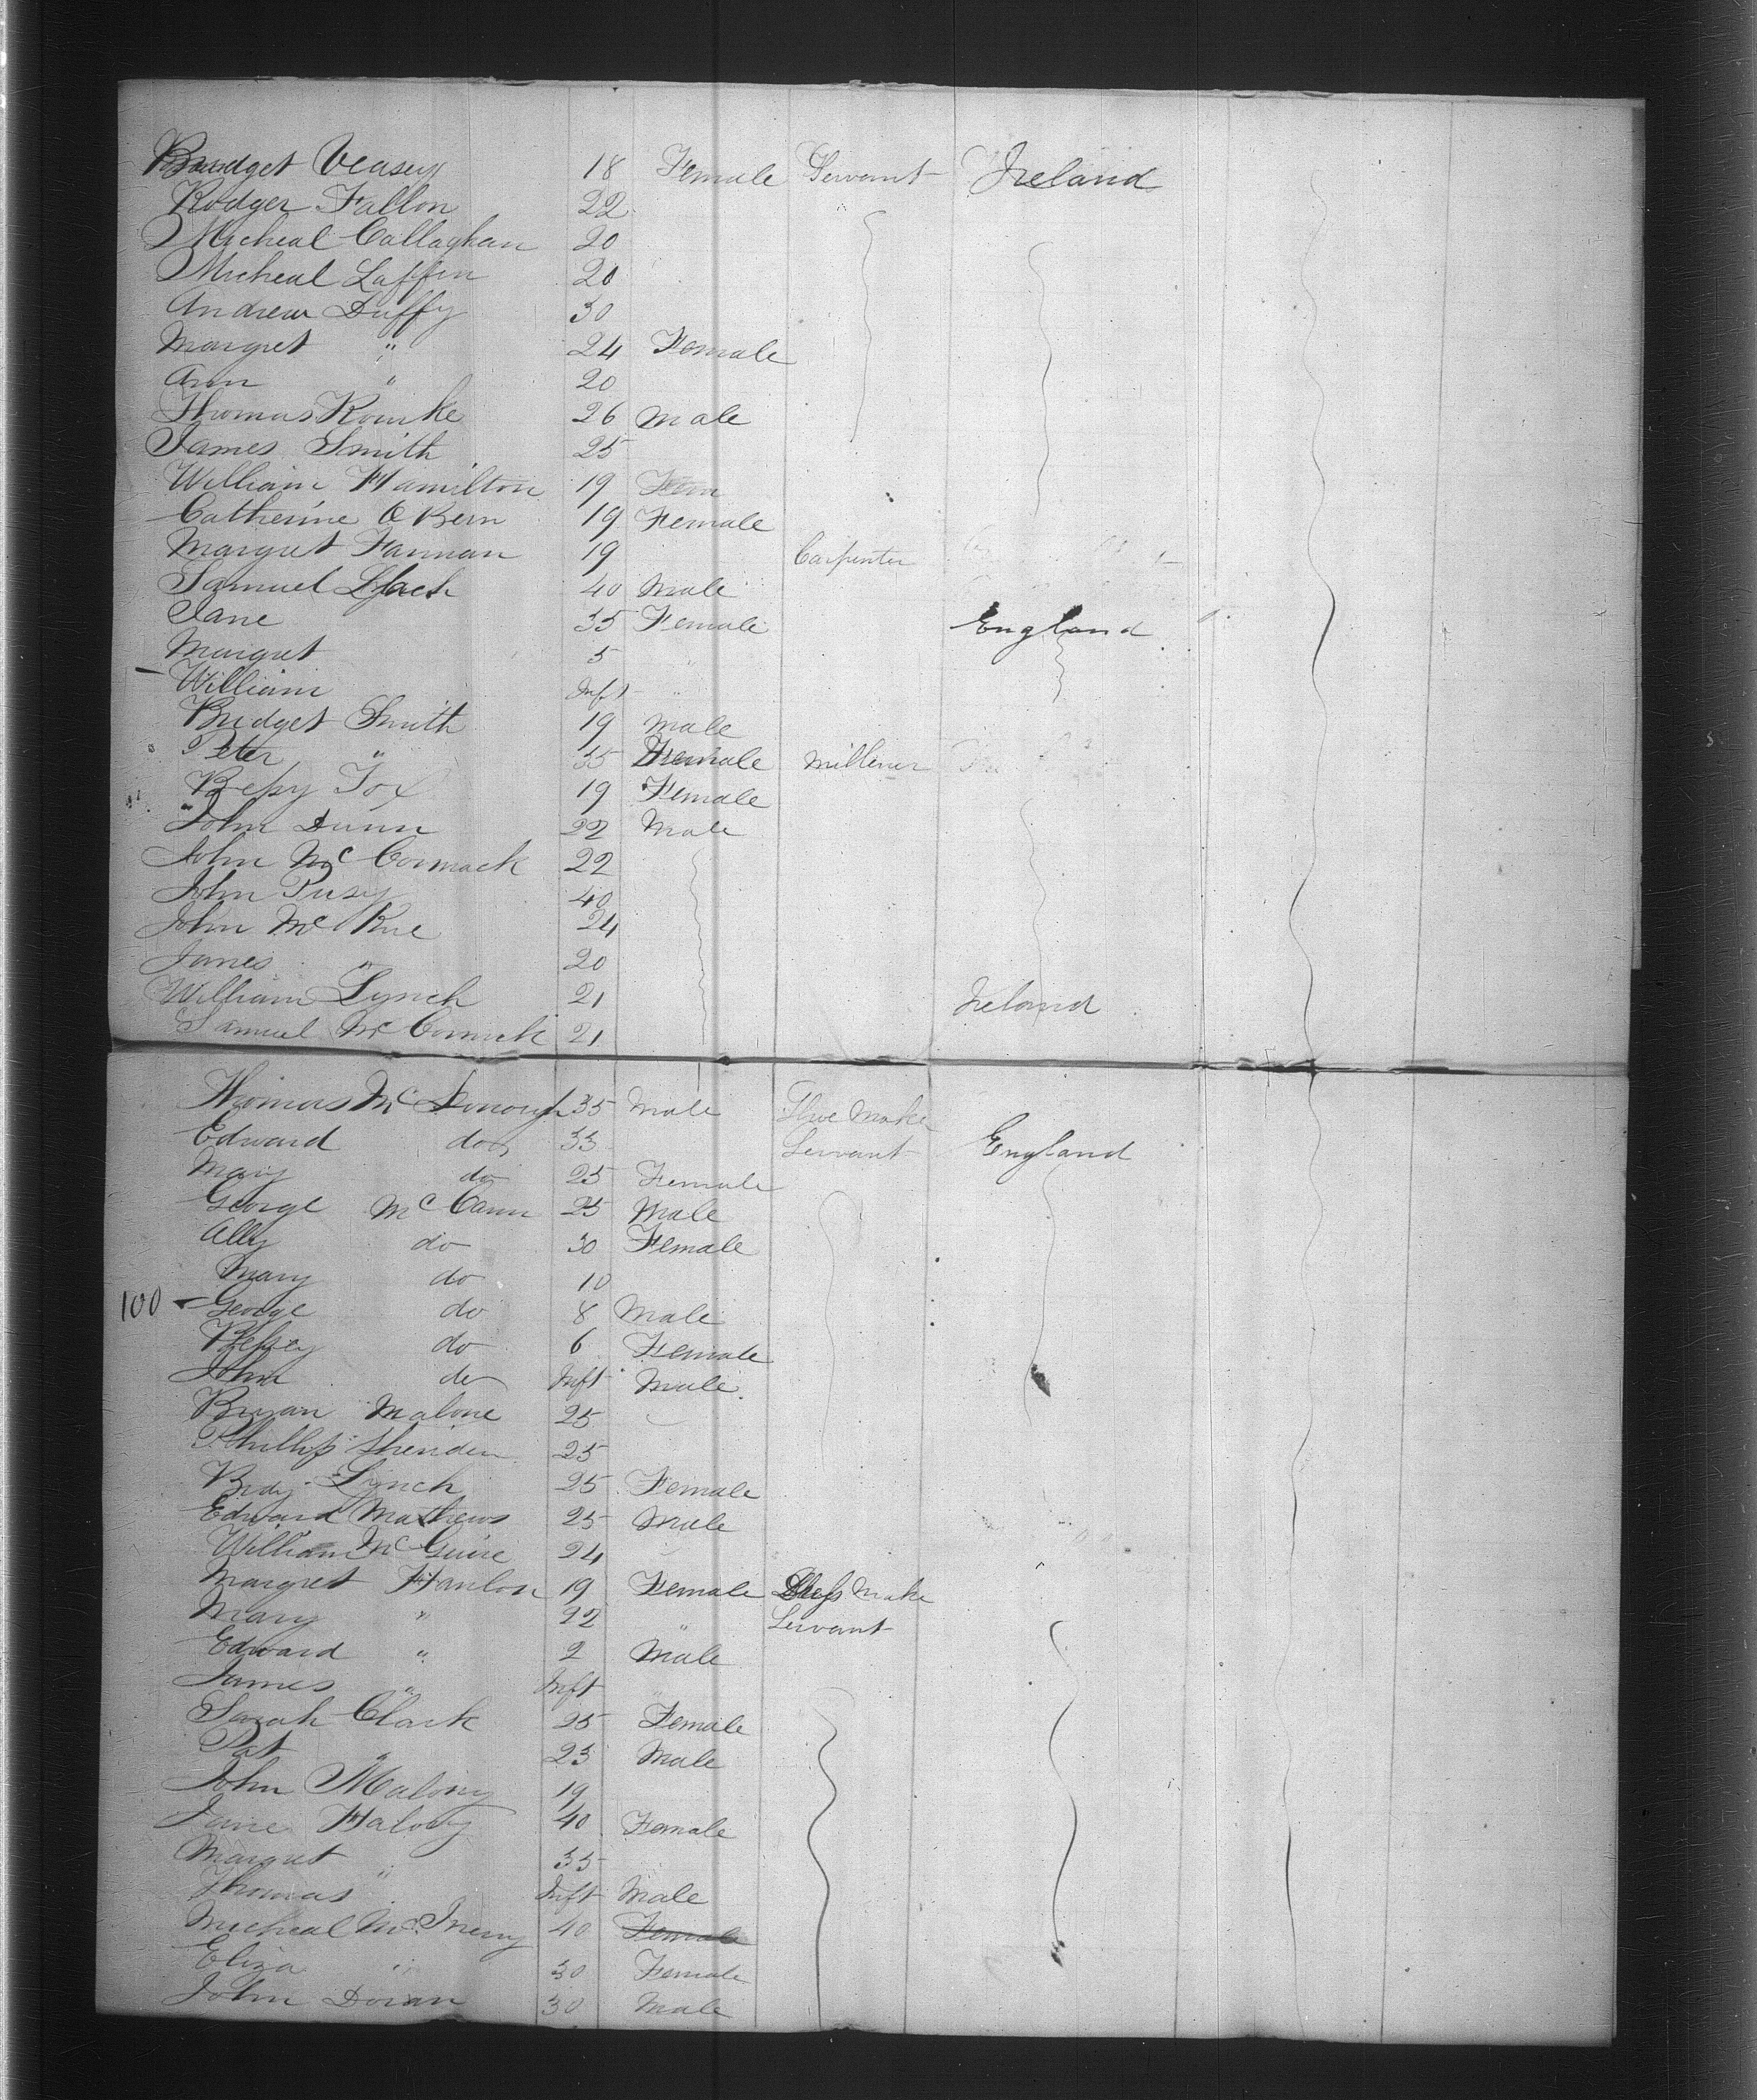 Bridget Veasey 18 Female Servant Ireland
Rodger Fallon 22
Micheal Callaghan 20
Micheal Laffin 20
Andrew Duffy 30
Margret " 24 Female
Ann " 20
Thomas Rourke 26 Male
James Smith 25
William Hamilton 19 Fem
Catherine O Bern 19 Female
Margret Fannan 19 Carpenter
Samuel 40 Male
Jane 35 Female England
Margret 5
William Inft "
Bridget Smith 19 Male
Peter " 35 Female Millener
Bessy Fox 19 Female
John Dunn 22 Male
John Mc Cormack 22
John Pusey 40
John Mc Kue 24
James " 20
William Lynch 21 Ireland
Samuel Mc Cormick 21
Thomas Mc Donough 35 Male Glue Make
Edward do 33 Servant England
Mary do 25 Female
George Mc Cann 25 Male
Ally do 30 Female
Mary do 10
100 George do 8 Male
Betsey do 6 Female
John do Inft Male
Bryan Malone 25
Phillip Sheriden 25
Bidy Lynch 25 Female
Edward Mathews 25 Male
William Mc Guire 24
Margret Hanlon 19 Female Dress Make
Mary " 22 " Servant
Edward " 2 Male
James " Inft
Sarah Clark 25 Female
Pat " 23 Male
John Malony 19
Jane Halovy 40 Female
Margret " 35
Thomas " Inft Male
Micheal Mc Inerny 40 Female
Eliza " 30 Female
John Doran 30 Male